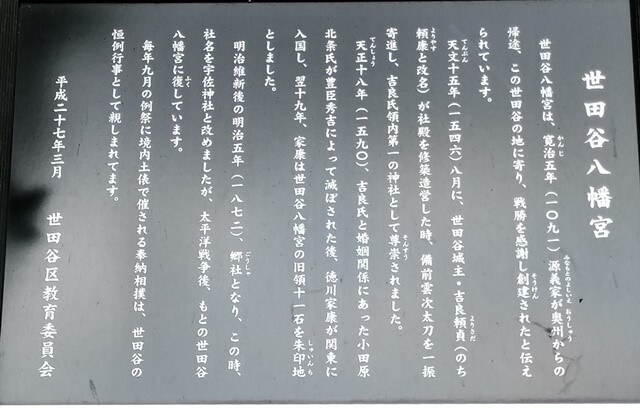 世田谷八幡宮
世田谷八幡宮は、寛治五年（一〇九一）源義家が奥州からの
帰途、この世田谷の地に寄り、戦勝を感謝し創建されたと伝え
られています。
天文十五年（一五四六）八月に、世田谷城主・吉良頼貞（のち
頼康と改名）が社殿を修築造営した時、備前雲次太刀を一振
寄進し、吉良氏領内第一の神社として尊崇されました。
天正十八年（一五九〇）、吉良氏と婚姻関係にあった小田原
北条氏が豊臣秀吉によって滅ぼされた後、徳川家康が関東に
入国し、翌十九年、家康は世田谷八幡宮の旧領十一石を朱印地
としました。
明治維新後の明治五年（一八七二）、郷社となり、この時、
社名を宇佐神社と改めましたが、太平洋戦争後、もとの世田谷
八幡宮に復しています。
毎年九月の例祭に境内土俵で催される奉納相撲は、世田谷の
恒例行事として親しまれてます。
平成二十七年三月　世田谷区教育委員会